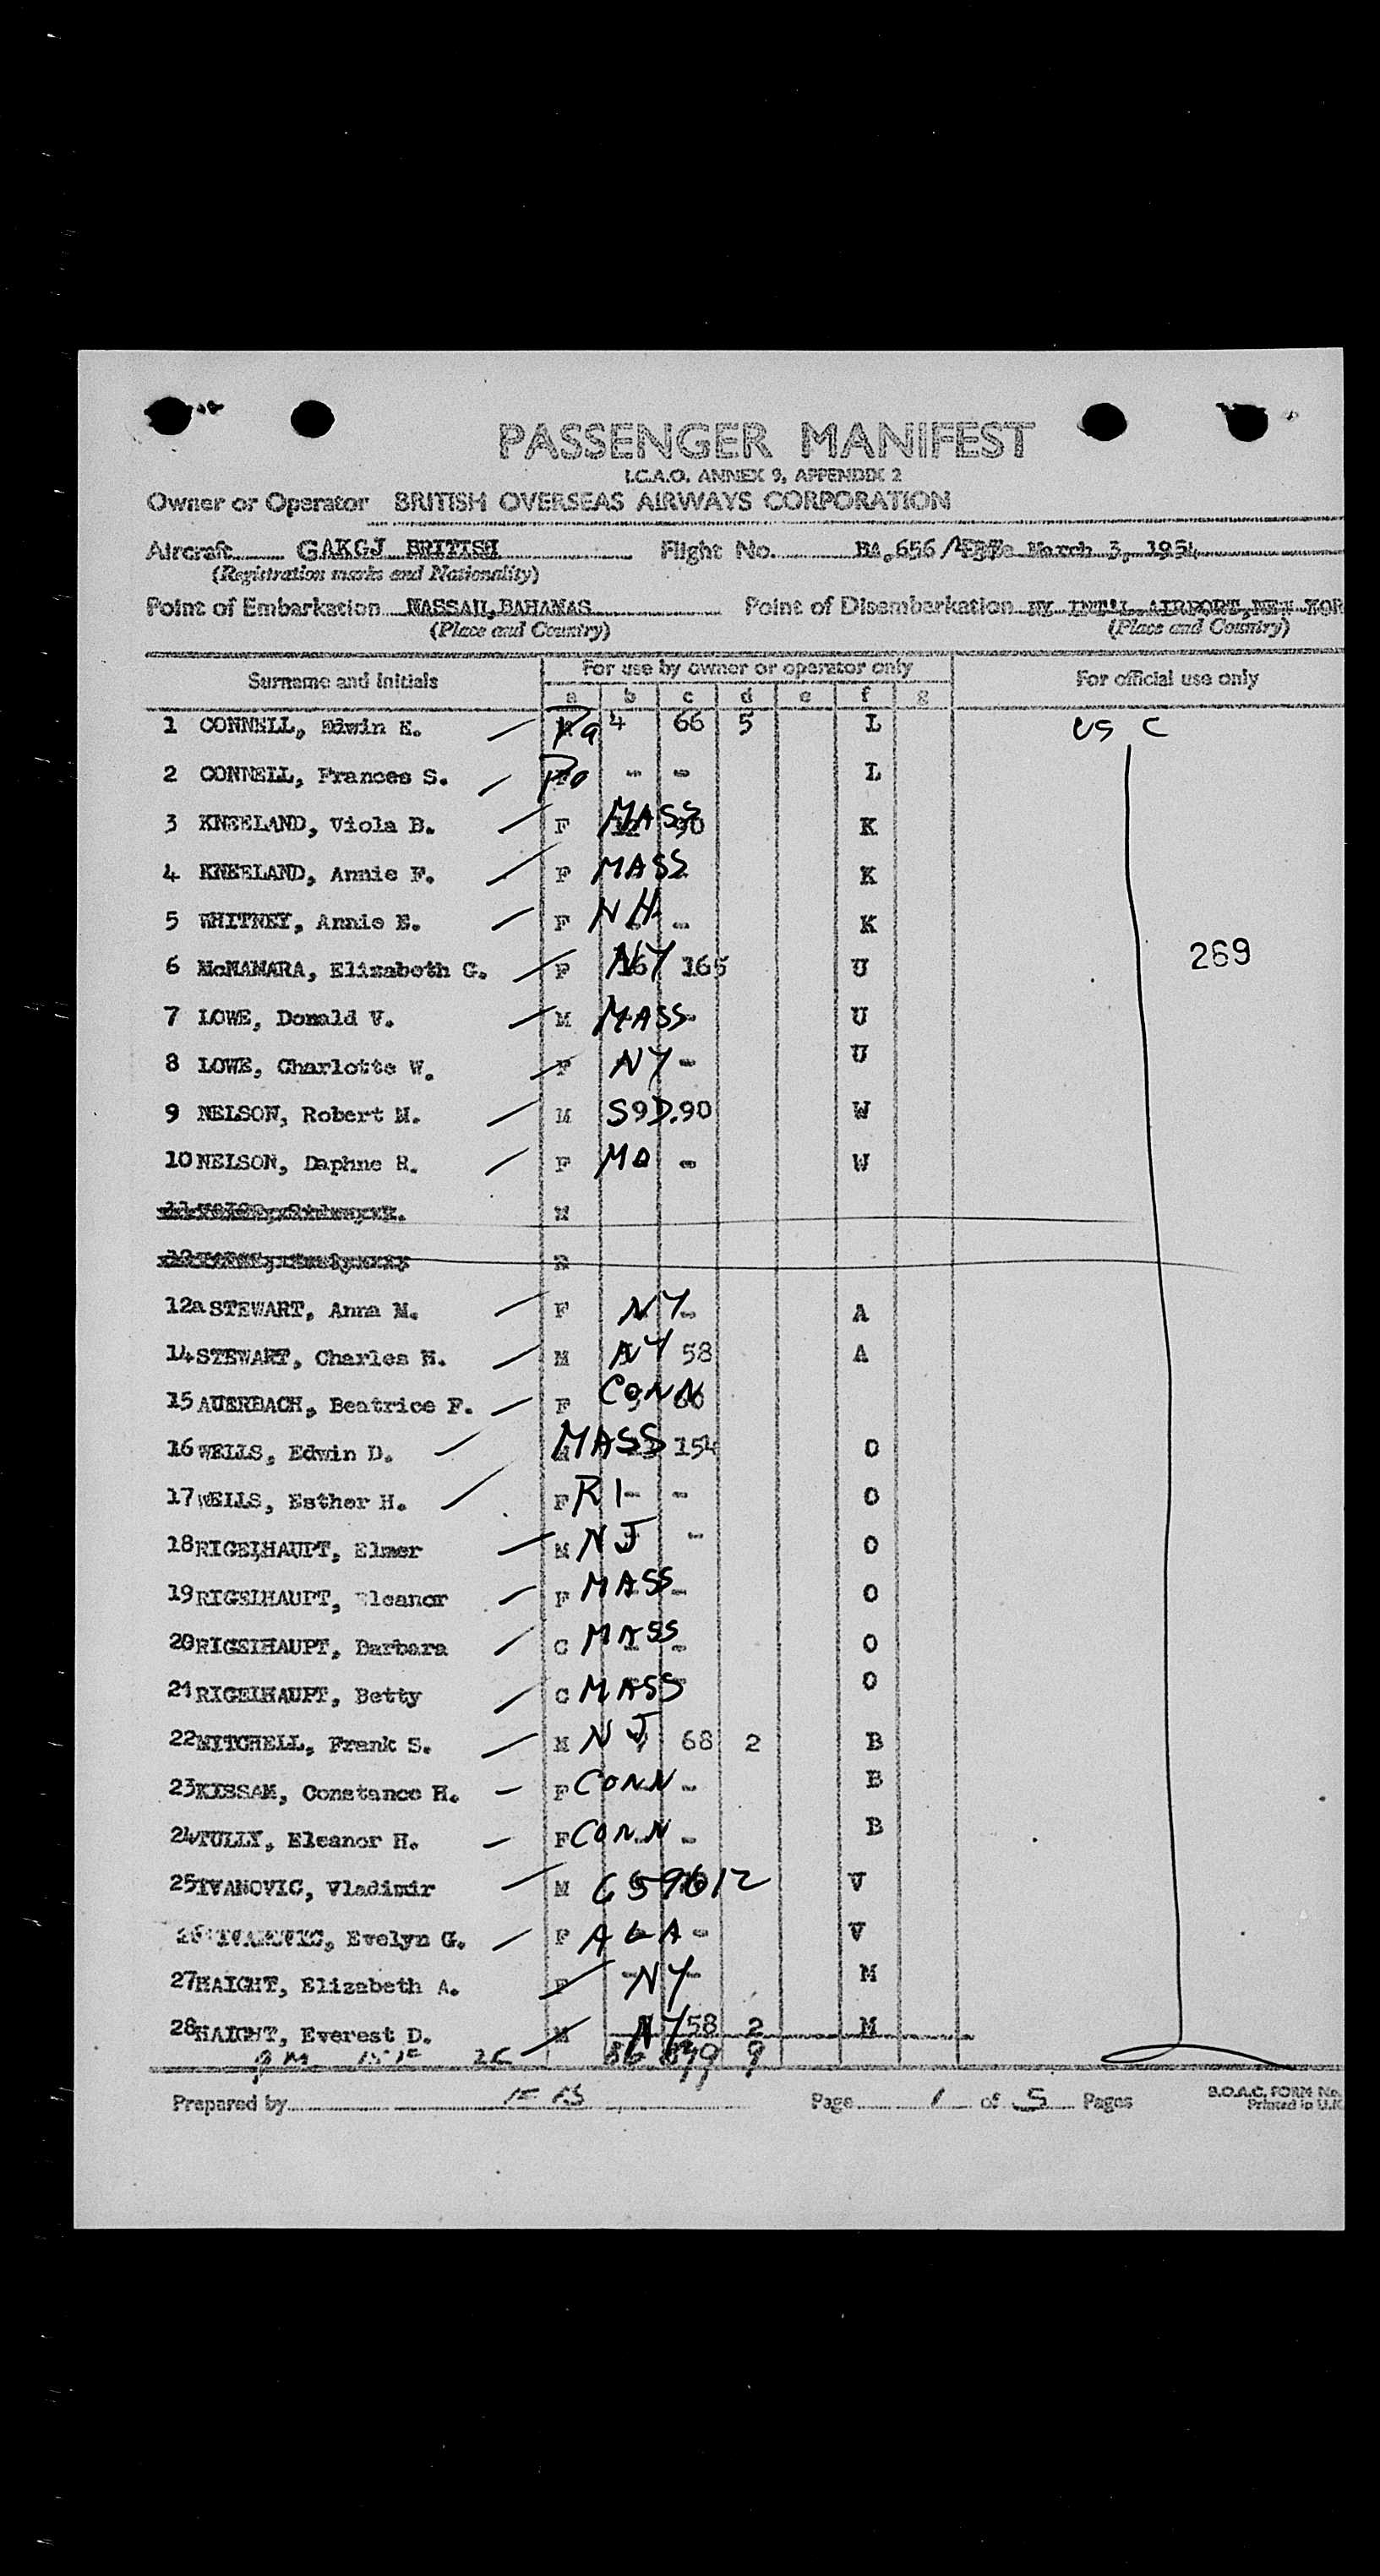 PASSENGER MANIFEST
I.C.A.O. ANNEX 9, APPENDIX 2
Owner or Operator BRITISH OVERSEAS AIRWAYS CORPORATION
Aircraft GAKGJ BRITISH Flight No. BA.656/ March 3, 1954
(Registration marks and Nationality)
Point of Embarkation NASSAU, BAHAMAS Point of Disembarkation NY INT'L. AIRPORT, NEW YOR
(Place and Country) (Place and Country)
Surname and Initials For use by owner or operator only For official use only
a b c d e f g
1 CONNELL, Edwin E. Pa 4 66 5 L US C
2 CONNELL, Frances S. Pa - - L
3 KNEELAND, Viola B. F MASS 90 K
4 KNEELAND, Annie F. F MASS K
5 WHITNEY, Annie E. F NH - K
269
6 McNAMARA, Elizabeth G. F NY 165 U
7 LOWE, Donald V. M MASS U
8 LOWE, Charlotte W. F NY - U
9 NELSON, Robert M. M S D. 90 W
10 NELSON, Daphne R. F MO - W
M
12a STEWART, Anna M. F NY - A
14 STEWART, Charles H. M NY 58 A
15 AUERBACH, Beatrice F. F CONN
16 WELLS, Edwin D. MASS 154 O
17 WELLS, Esther H. F RI - - O
18 RIGELHAUPT, Elmer M NJ - O
19 RIGELHAUPT, Eleanor F MASS - O
20 RIGELHAUPT, Barbara C MASS - O
21 RIGELHAUPT, Betty C MASS O
22 MITCHELL, Frank S. M NJ 68 2 B
23 KISSAM, Constance H. F CONN - B
24 TULLY, Eleanor H. F CONN - B
25 IVANOVIC, Vladimir M V
26 IVANOVIC, Evelyn G. F ALA - V
27 HAIGHT, Elizabeth A. F - NY - M
28 HAIGHT, Everest D. M NY 58 2 M
86 9
Prepared by Page 1 of 5 Pages B.O.A.C. FORM No.
Printed in U.K.